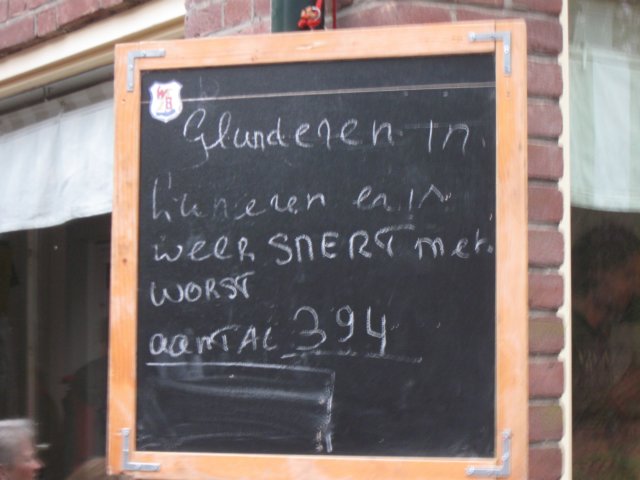 Glunderen in
kinneren er is
weer SNERT met
WORST
aantal 394